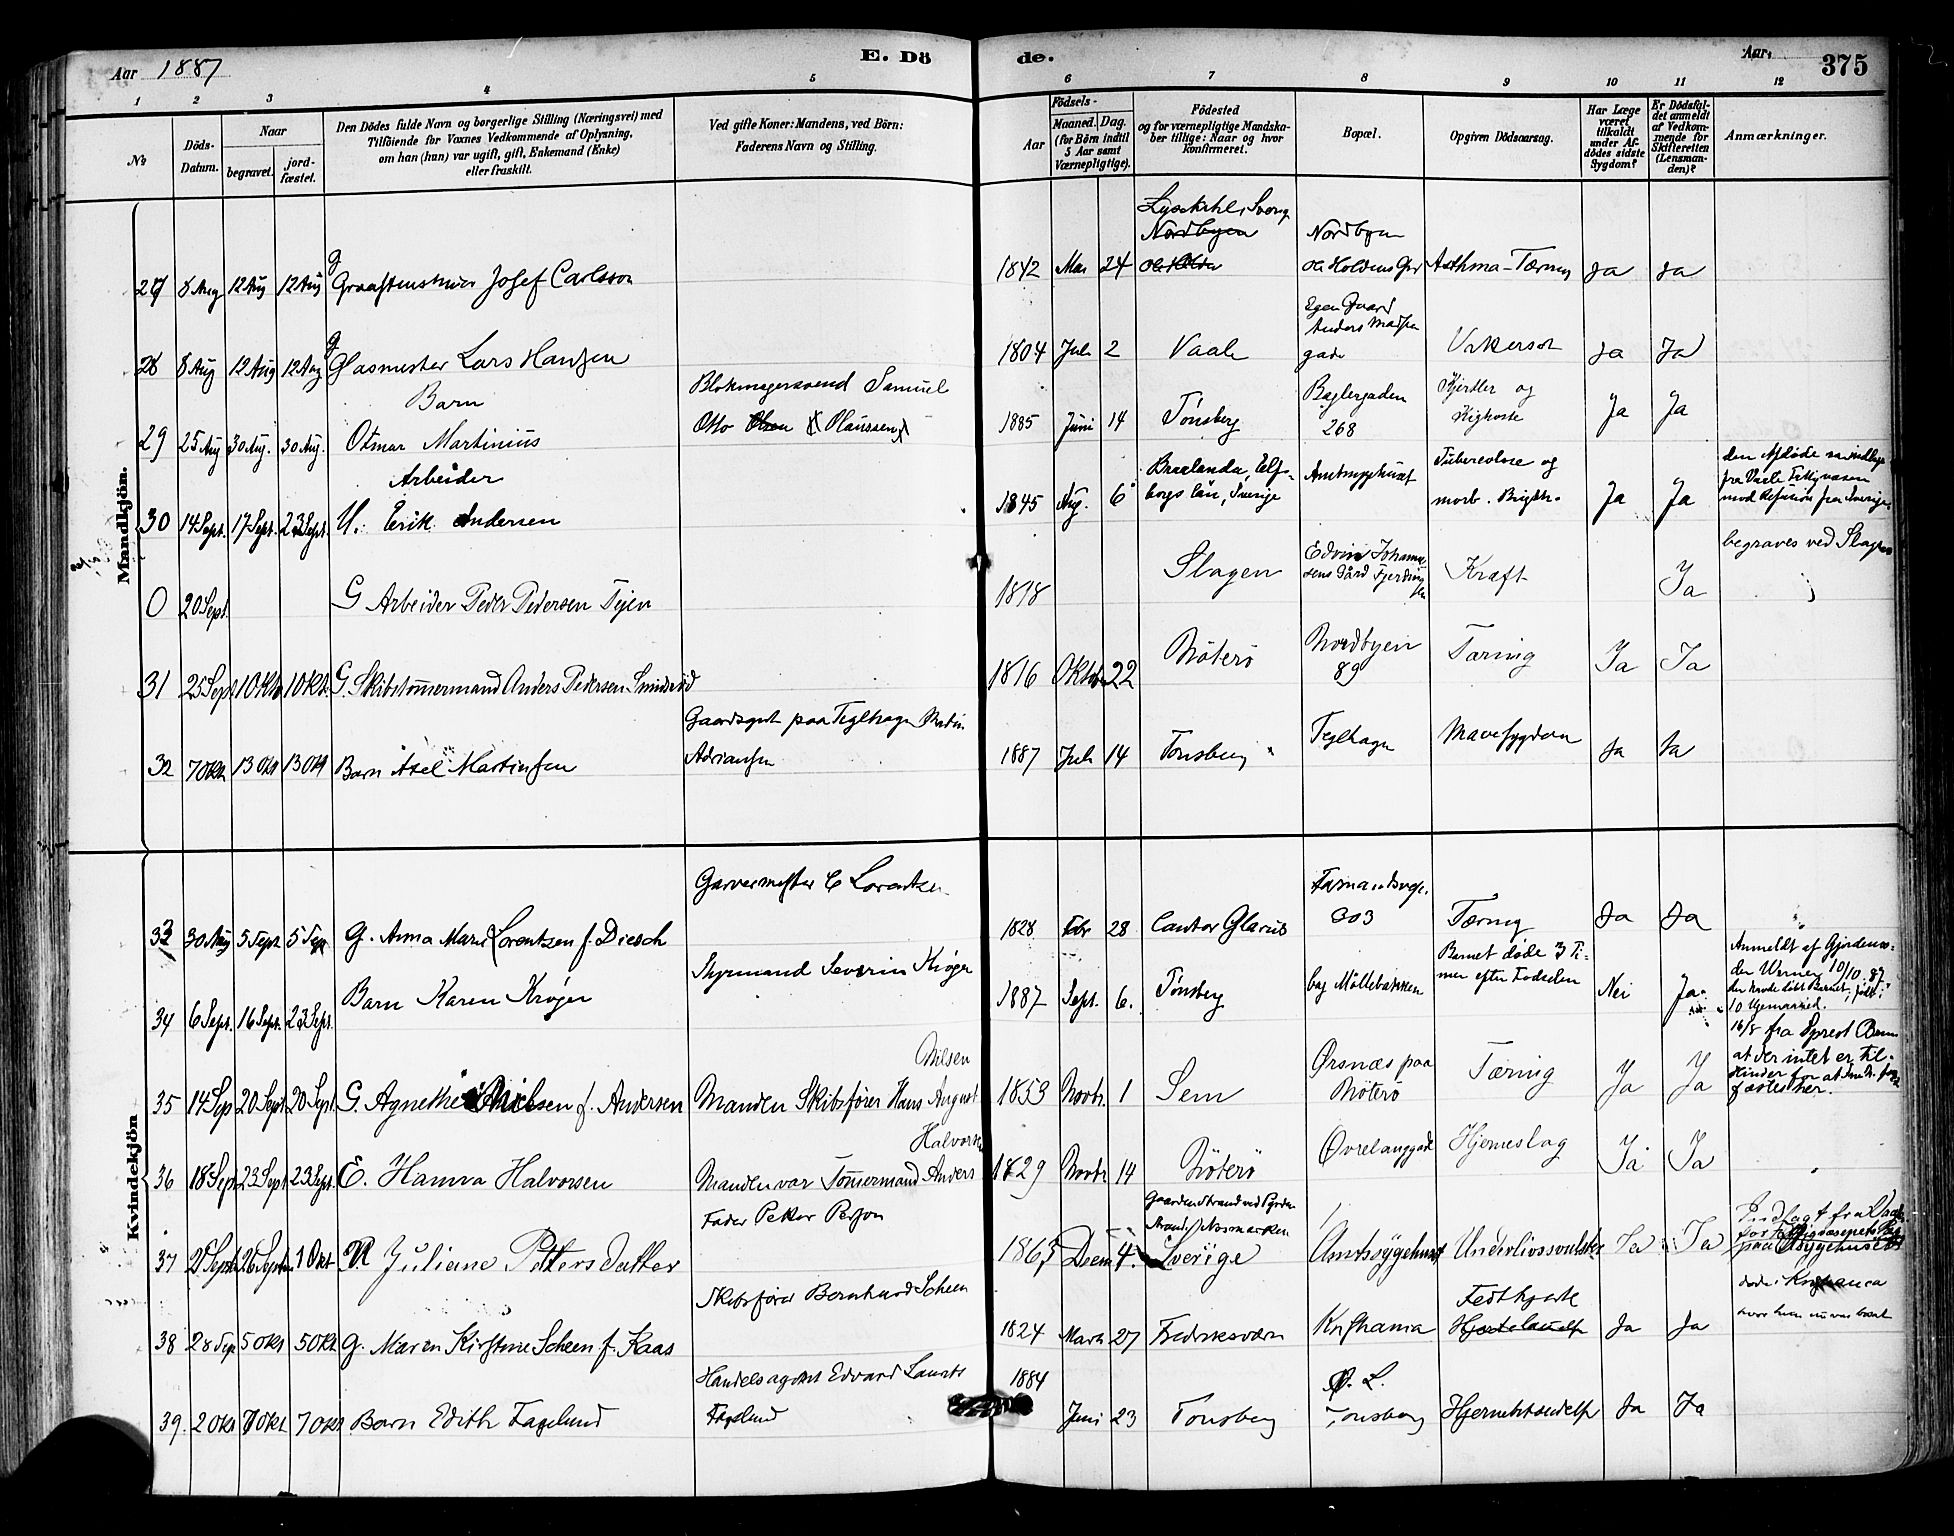 Aar 1887
E. Dö
de.
Aar.
375
1 2 3 4 5 6 7 8 9 10 11 12
No
Döds-Datum.
Naar
begravet.
jord-fæstet.
Den Dödes fulde Navn og borgerlige Stilling (Næringsvei) med
Tilföiende for Voxnes Vedkommende af Oplysning,
om han (hun) var ugift, gift, Enkemand (Enke)
eller fraskilt.
Ved gifte Koner: Mandens, ved Börn:
Faderens Navn og Stilling.
Födsels-
Aar
Maaned. Dag.
(for Börn indtil
5 Aar samt
Værnepligtige).
Födested
og for værnepligtige Mandska-
ber tillige: Naar og hvor
konfirmeret.
Bopæl.
Opgiven Dödsaarsag.
Har Læge
været
tilkaldt
under Af-
dödes sidste
Sygdom?
Er Dödsfal-
det anmeldt
af Vedkom-
mende for
Skifteretten
(Lensman-
den)?
Anmærkninger.
Mandkjön.
27 8 Aug 12 Aug 12 Aug G Graastenshuer Josef Carlsson
1842 Mai 24 Lysekihl, Sverig Nordbyen Nordbyen Ole Holdens Gr Asthma-Tæring Ja Ja
28 8 Aug 12 Aug 12 Aug G Glasmester Lars Hansen
1804 Juli 2 Vaale Egen Gaard Anders Madsen gade Ja Ja
29 25 Aug 30 Aug. 30 Aug. Barn Otmar Martinius
Blokmagersvend Samuel Otto Olsen Olaussen
1885 Juni 14 Tönsberg Baglergaden 268 og Kighoste Ja Ja
30 14 Sept. 17 Sept. 23 Sept. Arbeider U. Erik Andersen
1845 Aug. 6 Braalanda, Elfsborgs län, Sverige Amtssygehuset Tuberculose og morb. Brigth. Ja Ja
den Afdøde var indlagt fra Vaale Fattigvæsen mod Refusion fra Sverige
0 20 Sept. G Arbeider Peder Pedersen Tejen
1818 Slagen Edvin Johannesens Gård Fjerdingen Kræft Ja begraves ved Slagen
31 25 Sept 1 Okt 1 Okt. G. Skibstømmermand Anders Pedersen Smidsrød
1816 Oktbr 22 Nöterö Nordbyen 89 Tæring Ja Ja
32 7 Okt 13 Okt 13 Okt Barn Axel Martinsen
Gaardsgut paa Teglhagen Martin Adriansen
1887 Juli 14 Tonsberg Teglhagen Mavesygdom Ja Ja
Kvindekjön
33 30 Aug 5 Sept 5 Sept G. Anna Marie Lorentzen f. Diesch
Garvermester C Lorentzen
1828 Febr 28 Canton Glarus Farmandsveje. 303 Tæring Ja Ja
34 6 Sept. 16 Sept. 23 Sept. Barn Karen Krøger
Styrmand Severin Krøger
1887 Sept. 6. Tönsberg bag Möllebakken Barnet døde 3 Timer efter Fødselen Nei Ja
Anmeldt af Gjordemoder Werner 10/10 87
35 14 Sep 20 Sept 20 Sept G. Agnethe Nielsen f. Andersen
Manden Skibsfører Hans August Nilsen
1853 Novbr. 1 Sem Ørsnæs paa Nöterö Tæring Ja Ja
at der intet er til Hinder for at
36 18 Sept 23 Sept 23 Sept. E. Hanna Halvorsen
Manden var Tömmermand Anders Halvorsen
1829 Novbr 14 Nöterö Øvrelanggade Hjerneslag Ja Ja
37 21 Sept 26 Septbr. 1 Okt U Juliane Pettersdatter
Fader Petter Person
1865 Decem 4. Sverige Amtssygehuset Underlivssvulster Ja Ja
38 28 Sep 5 Okt 5 Okt G. Maren Kirstine Scheen f. Kaas
Skibsfører Bernhard Scheen
1824 Marts 27 Fredriksværn Kristiania Fedthjerte Ja Ja
døde i Kristiania
39. 2 Okt 7 Okt 7 Okt Barn Edith Fagelund
Handelsagent Edvard Laurits Fagelund
1884 Juni 23 Tonsberg Ø. L. Tonsberg Ja Ja